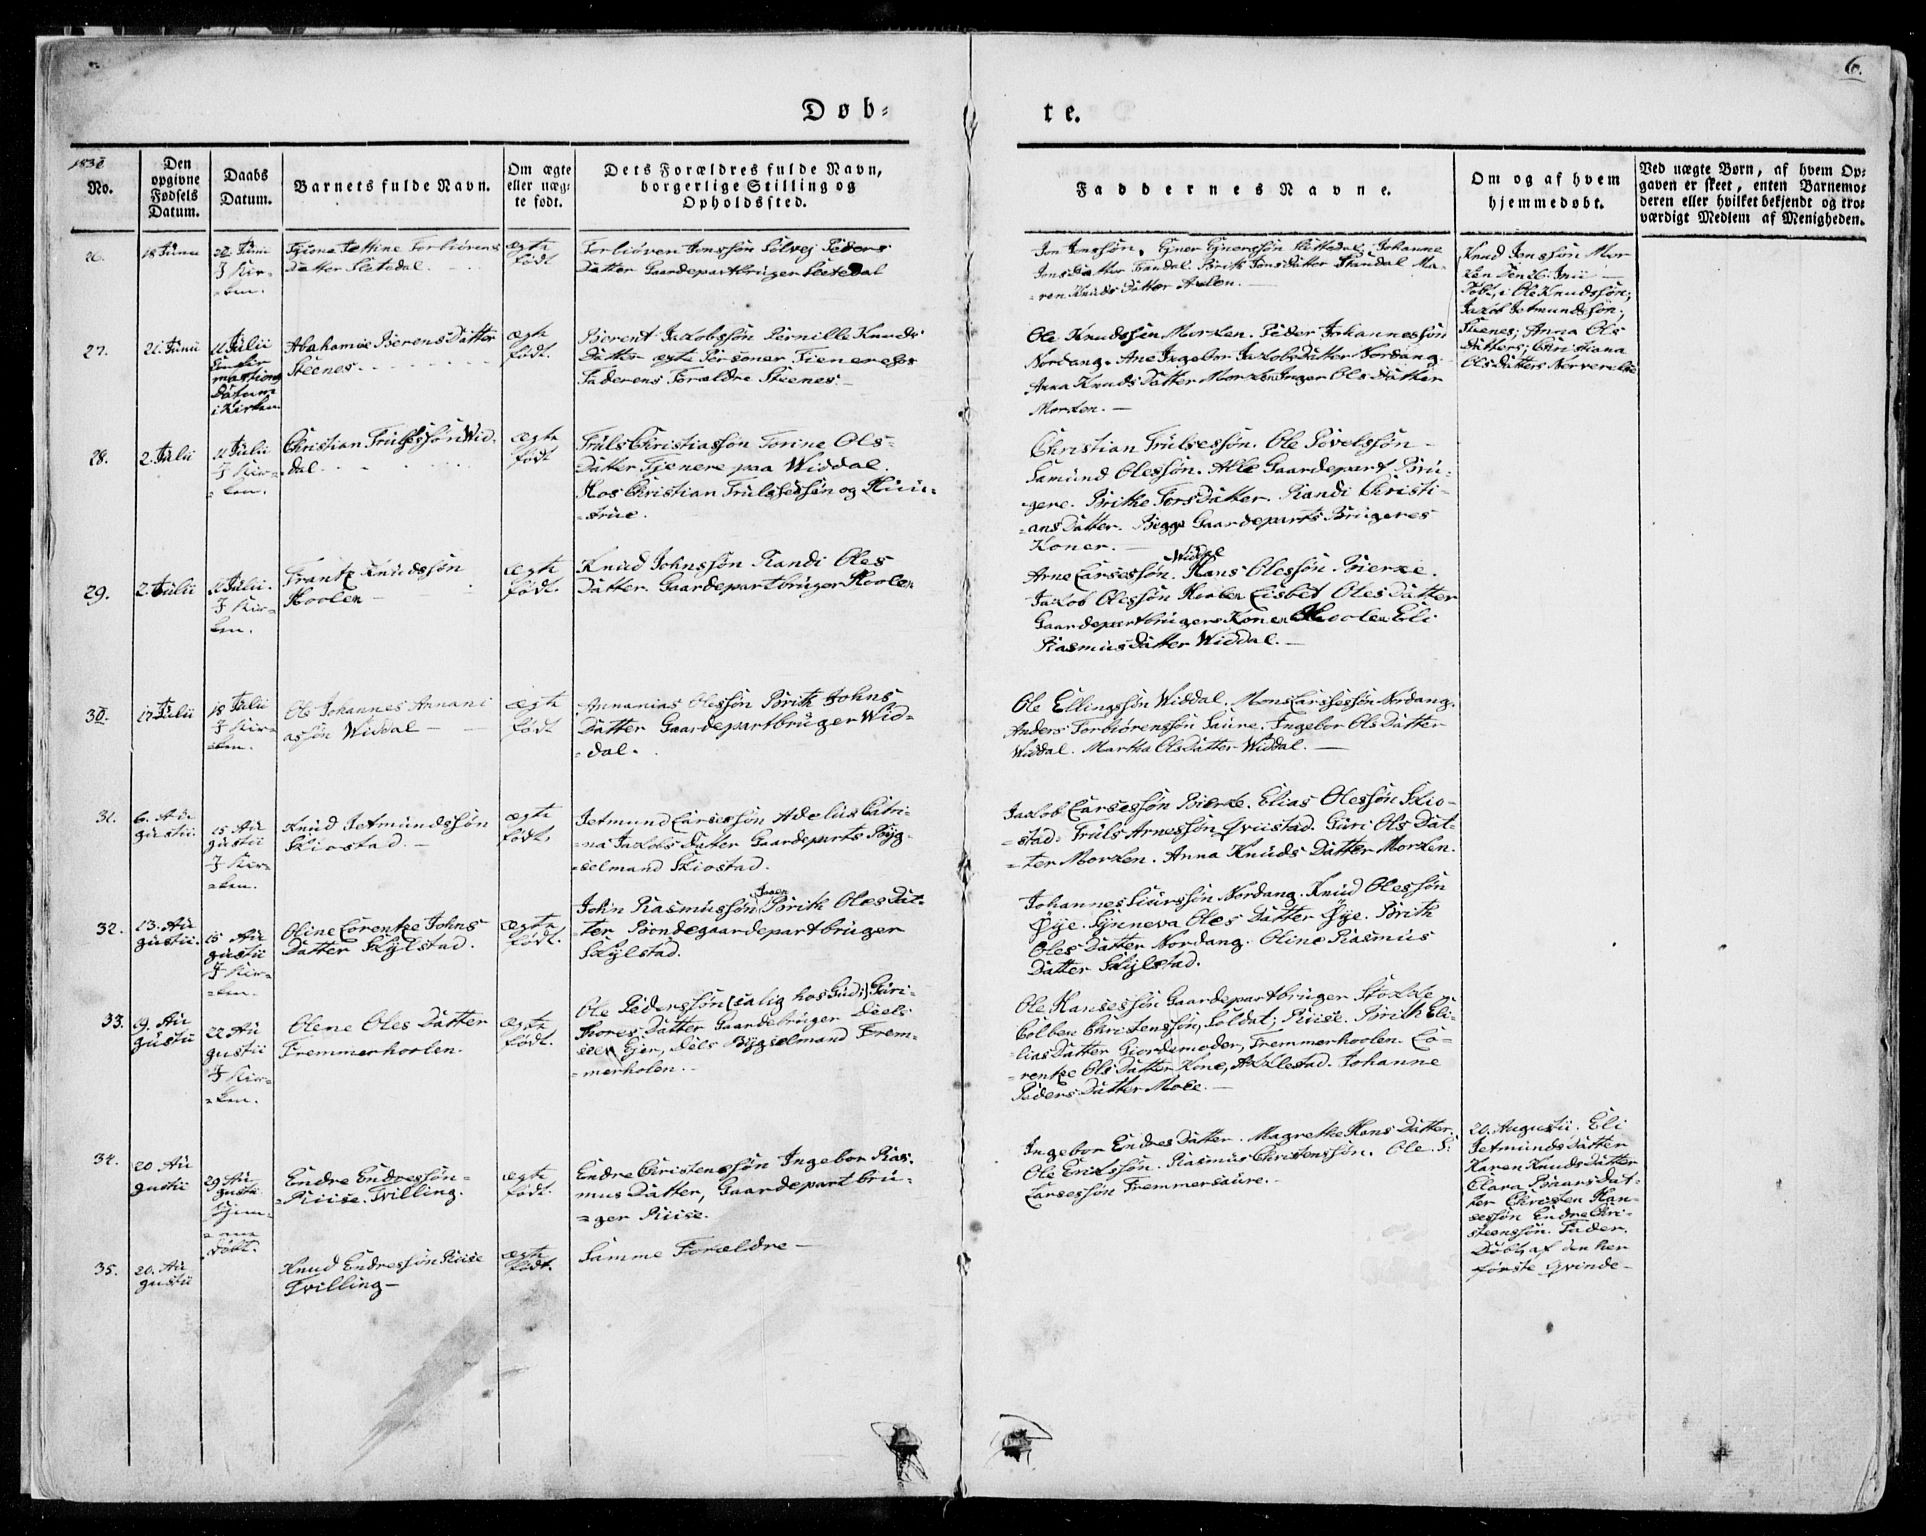 6.
Døb-
te.
1830
No.
Den
opgivne
Fødsels
Datum.
Daabs
Datum.
Barnets fulde Navn.
Om ægte
eller uæg-
te født.
Dets Forældres fulde Navn,
borgerlige Stilling og
Opholdssted.
Faddernes Navne.
Om og af hvem
hjemmedøbt.
Ved uægte Børn, af hvem Op-
gaven er skeet, enten Barnemo-
deren eller hvilket bekjendt og tro-
værdigt Medlem af Menigheden.
26.
18 Junii
Junii
I Kir-
-ken.
Torbiørns
Datter Sletedal.
ægte
født
Torbiørn Jonssøn Sølvej Peders
Datter Gaardepartbruger Sletedal
Jon Jonssøn. Ejner Ejnerssøn Slettedal. Johanne
Jons Datter Brith Jons Datter Standal Ma-
-ren Knuds Datter
Knud Jonssøn Mor
ken den 26. Junii —
Døbt, i Ole Knudssøn;
Jakob Jetmundssøn;
Steenes; Anna Ols
Datters; Christiana
Ols Datters
27.
21 Junii
11 Julii
Datum
i Kirken
Abahamine Berens Datter
Steenes
ægte
født.
Berent Jakobssøn Pernille Knuds
Datter ægte Personer Tjenere hos
Faderens Forældre Steenes —
Ole Knudssøn Morken. Peder Johannessøn
Nordang. Ane Ingebor Jakobs Datter Nordang.
Anna Knuds Datter Morken Inger Ols Datter
Morken. —
28.
2. Julii
11 Julii
I Kir-
-ken.
Christian Trulssøn Wid-
-dal
ægte
født
Truls Christiassøn Torine Ols-
Datter Tjenere paa Widdal.
Hos Christian Trulssøn og Huu-
-strue.
Christian Trulsessøn. Ole Povelssøn
Samund Olessøn. Alle Gaardepart Bru-
-gere. Brithe Tors Datter. Randi Christi-
-ans Datter. Begge Gaardeparts Brugeres
Koner. —
29.
2. Julii
11 Julii.
I Kir-
ken.
Frantz Knudssøn
Hoolen —
ægte
født.
Knud Johnssøn Randi Oles
Datter. Gaardepartbruger Hoolen
Widdal
Arne Larsessøn. Hans Olessøn Bierke.
Jakob Olessøn Lisbet Oles Datter
Gaardepartbrugers Kone Hoolen Eli
Rasmus Datter Widdal. —
30.
17 Julii
18 Julii
I Kir-
-ken.
Ole Johannes Annani
assøn Widdal —
ægte
født
Annanias Olessøn Brith Johns
Datter Gaardepartbruger Wid-
-dal.
Ole Ellingssøn Widdal. Mons Larssessøn Nordang.
Anders Torbiørenssøn Saure. Ingebor Ols Datter
Widdal. Martha Ols Datter Widdal. —
31.
6. Au
gustii.
15 Au
gustii
I Kir-
-ken.
Knud Jetmundssøn
Skiostad. —
ægte
født.
Jetmund Larsessøn Adelus Catri-
-na Jakobs Datter Gaardeparts Byg-
-selmand Skiostad.
Jakob Larsessøn Bierke. Elias Olessøn Skio-
-stad. Truls Arnessøn Qviistad. Guri Ols Dat-
-ter Morken. Anna Knuds Datter Morken.
32.
13. Au
gustii.
15 Au
gustii
I Kir-
-ken.
Oline Lorentze Johns
Datter Skylstad.
ægte
født.
John Rasmussøn Brith Oles Dat-
ter Bondegaardepartbruger
Skylstad.
Johannes Siurssøn Nordang. Knud Olessøn
Øye. Synneva Oles Datter Øye. Brith
Oles Datter Nordang. Oline Rasmus
Datter Skylstad.
33.
19. Au
gustii
22 Au
gustii
I Kir-
-ken.
Olene Oles Datter
Fremmerhoolen.
ægte
født.
Ole Pederssøn (salig hos Gud) Guri-
Thores Datter Gaardebruger Deels
Ejer, Dels Bygselmand Frem-
-merholen.
Ole Hansessøn Gaardepartbruger Stokke
Colben Christenssøn, Soldat, Riise. Brith Eli-
-lias Datter Giordemoder, Fremmerhoolen. Lo-
-rentze Ols Datter Kone, Aklestad. Johanne
Peders Datter Moe. —
34.
20 Au
gustii
29 Au
gustii
Hjem-
døbt.
Endre Endressøn
Riise. Tvilling.
ægte
født.
Endre Christenssøn Ingebor Ras-
mus Datter, Gaardepart bru-
-ger Riise.
Ingebor Endres Datter. Magrethe Hans Datter.
Ole Erikssøn. Rasmus Christenssøn. Ole S:
Larsessøn Fremmersaure. —
20. Augustii. Eli
Jetmunds Datter
Karen Knuds Datter
Clara Dat-
ter Christen Han-
sessøn Endre Chri-
steenssøn. Fader.
Døbt, af den her
første Qvinde —
35.
20. Au
gustii
Knud Endressøn Riise
Tvilling —
ægte
født.
Samme Forældre —